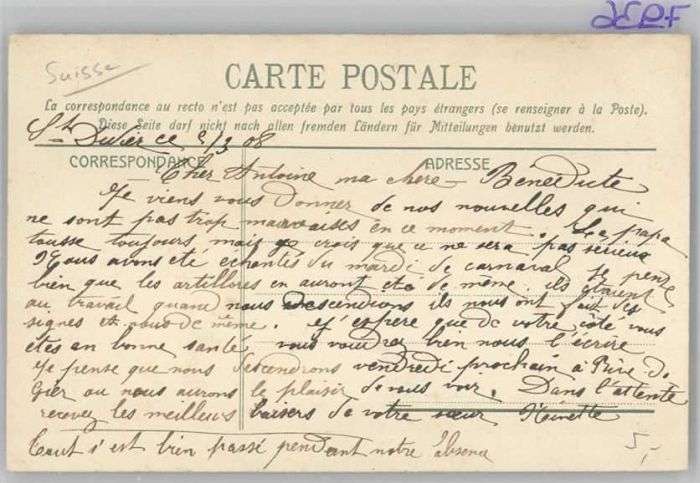 2EPF
Suisse
CARTE POSTALE
La correspondance au recto n'est pas acceptée par tous les pays étrangers (se renseigner à la Poste).
Diese Seite darf nicht nach allen fremden Ländern für Mitteilungen benutzt werden.
St Didier ce 5/3 08
CORRESPONDANCE
ADRESSE
Cher Antoine ma chere Benedicte
Je viens vous donner de nos nouvelles qui
ne sont pas trop mauvaises en ce moment. Le papa
tousse toujours mais je crois que ce ne sera pas serieux
Nous avons eté echantés du mardi de carnaval je pense
bien que les artilleres en auront eté de même. ils étaient
au travail quand nous descendions ils nous ont fait des
signes et nous de même. et espere que de votre côté vous
etes en bonne santé vous voudrez bien nous l'écrire
Je pense que nous descendrons vendredi prochain à Rive de
Gier ou nous aurons le plaisir de vous voir. Dans l'attente
recevez les meilleurs baisers de votre sœur
Tout s'est bien passé pendant notre absence
5,-